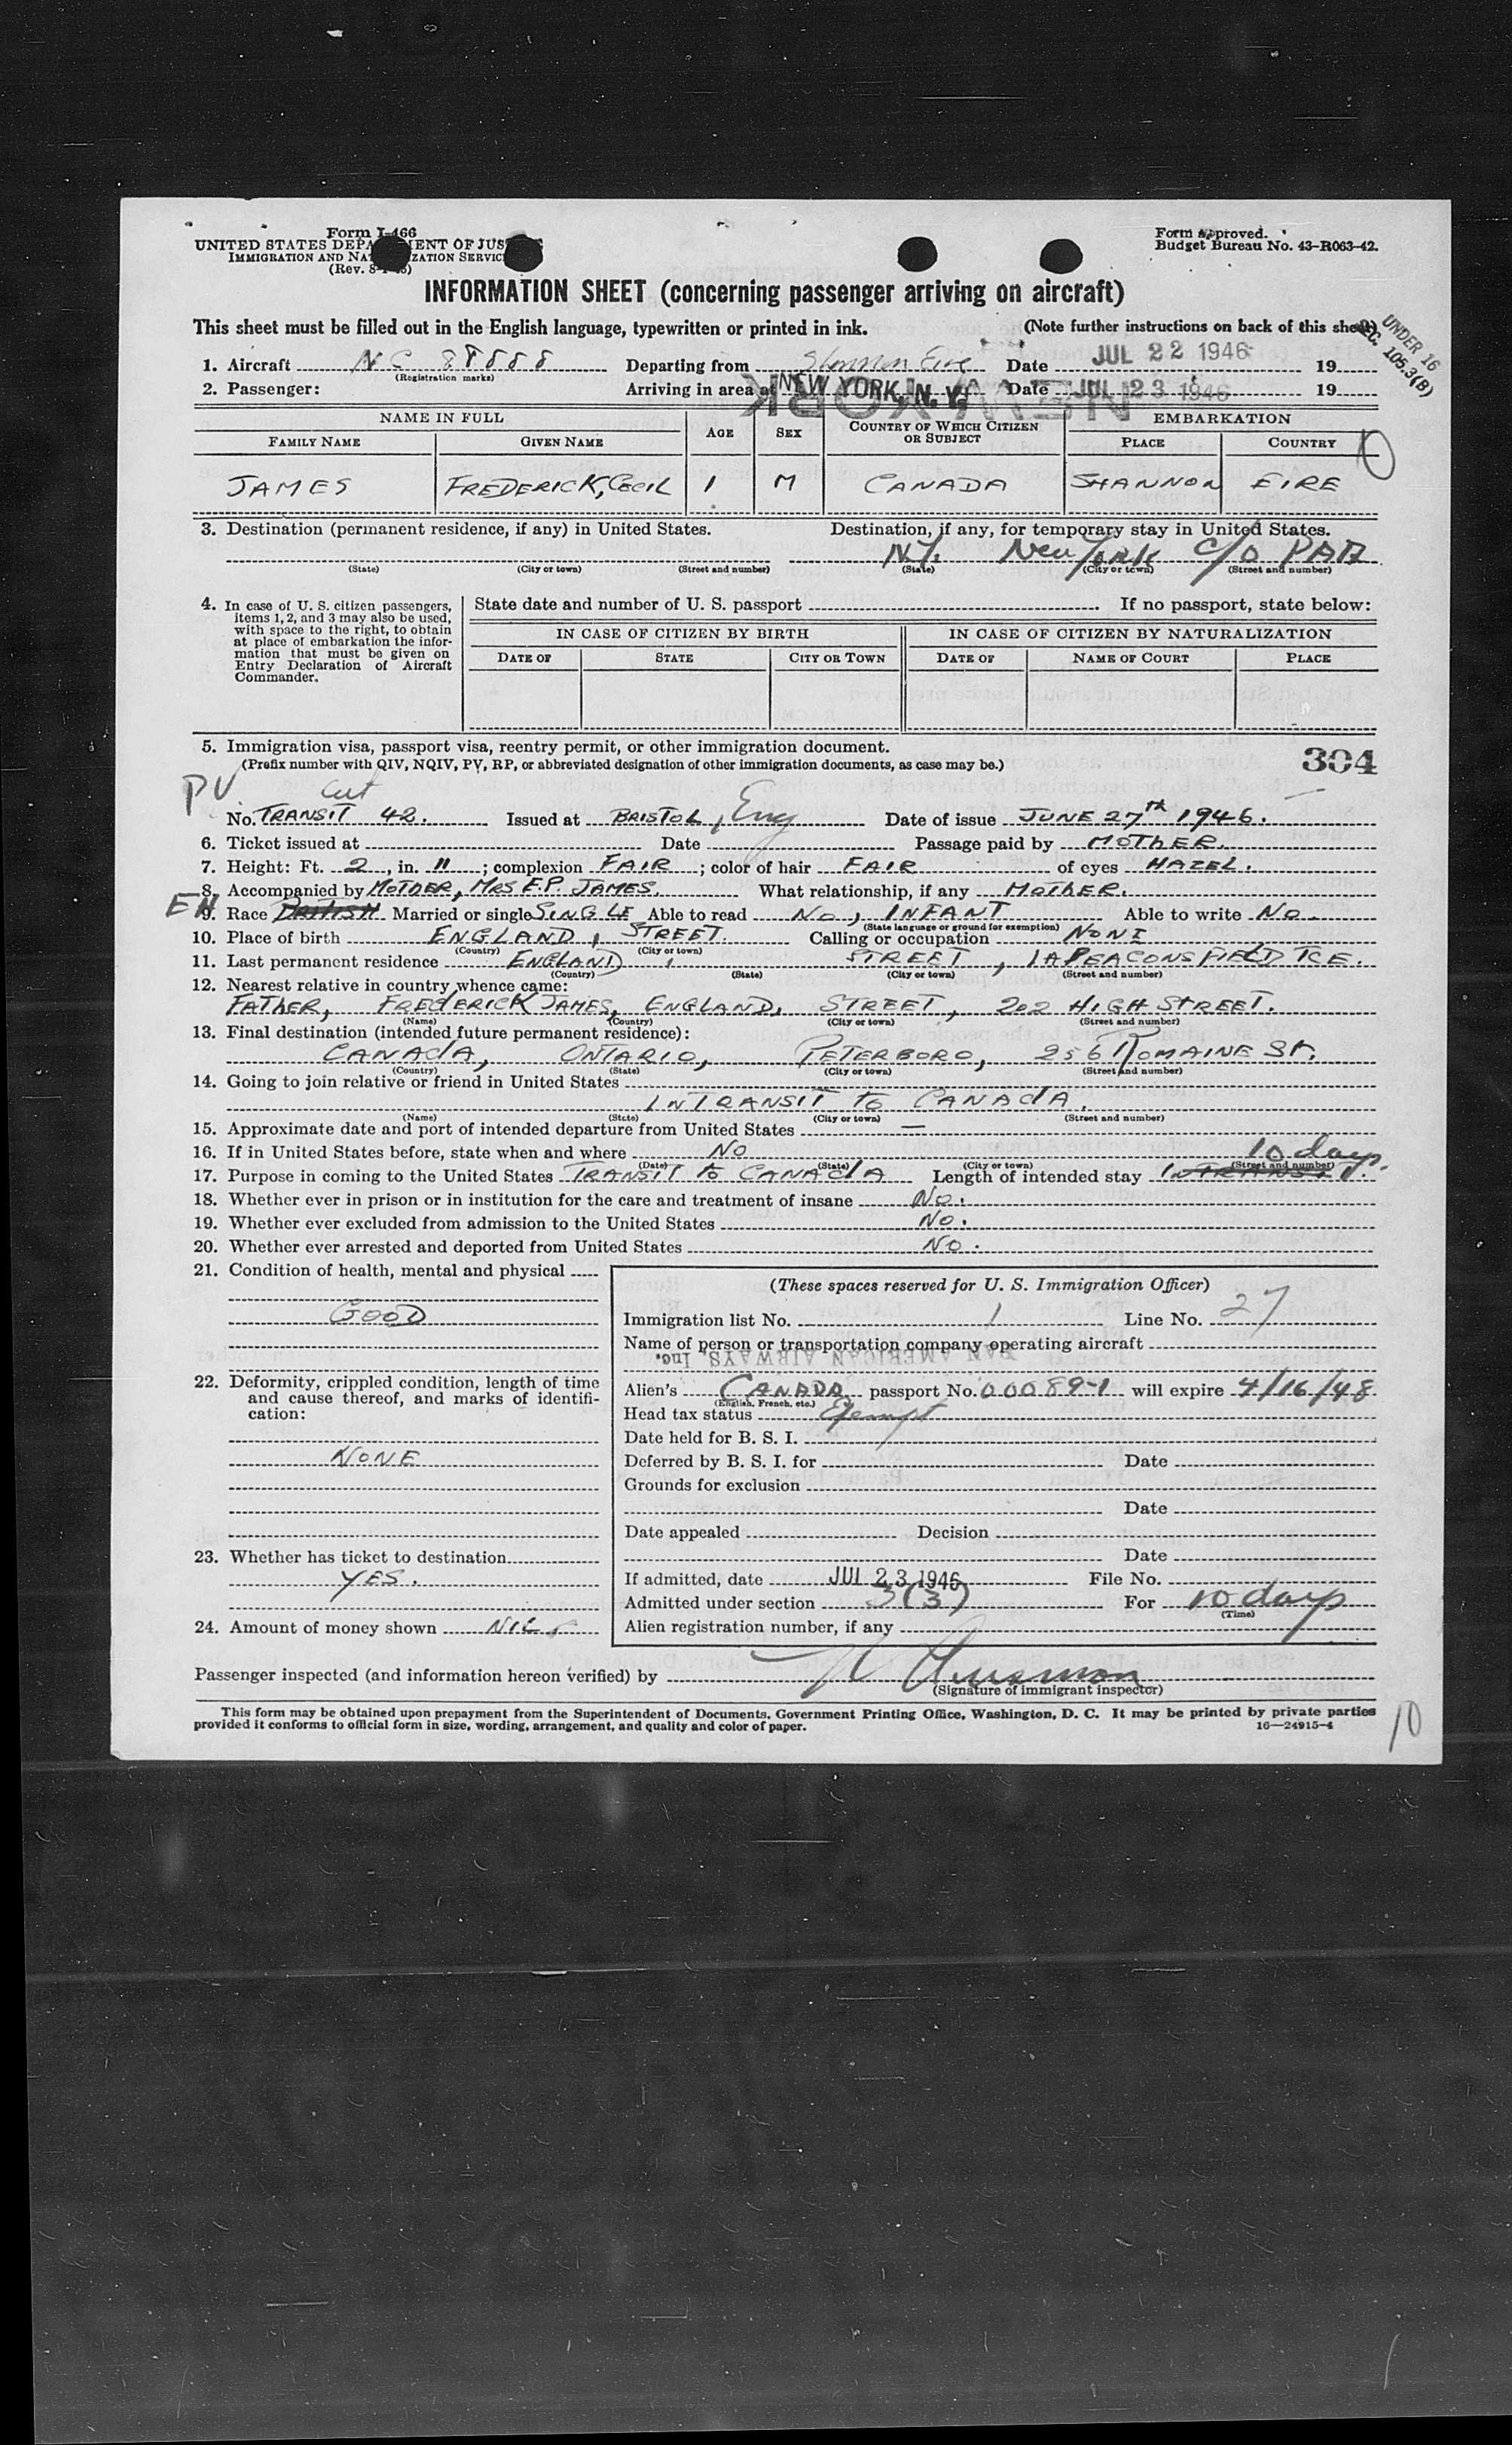 Form I-466
UNITED STATES DEPARTMENT OF JUSTICE
IMMIGRATION AND NATURALIZATION SERVICE
(Rev. 8-1-45)
Form approved.
Budget Bureau No. 43-R063-42.
INFORMATION SHEET (concerning passenger arriving on aircraft)
This sheet must be filled out in the English language, typewritten or printed in ink. (Note further instructions on back of this sheet)
UNDER 16
SEC. 105.3(B)
1. Aircraft NC 88888 Departing from Shannon Eire Date JUL 22 1946 19
(Registration marks)
2. Passenger: Arriving in area at NEW YORK, N. Y. Date JUL 23 1946 19
NEW YORK
NAME IN FULL AGE SEX COUNTRY OF WHICH CITIZEN OR SUBJECT EMBARKATION
FAMILY NAME GIVEN NAME PLACE COUNTRY
JAMES FREDERICK, CECIL 1 M CANADA SHANNON EIRE
3. Destination (permanent residence, if any) in United States. Destination, if any, for temporary stay in United States.
N.Y. New York c/o PAA
(State) (City or town) (Street and number) (State) (City or town) (Street and number)
4. In case of U. S. citizen passengers, items 1, 2, and 3 may also be used, with space to the right, to obtain at place of embarkation the information that must be given on Entry Declaration of Aircraft Commander.
State date and number of U. S. passport If no passport, state below:
IN CASE OF CITIZEN BY BIRTH IN CASE OF CITIZEN BY NATURALIZATION
DATE OF STATE CITY OR TOWN DATE OF NAME OF COURT PLACE
5. Immigration visa, passport visa, reentry permit, or other immigration document.
(Prefix number with QIV, NQIV, PV, RP, or abbreviated designation of other immigration documents, as case may be.)
304
PV Cert
No. TRANSIT 42. Issued at BRISTOL, Eng Date of issue JUNE 27th 1946.
6. Ticket issued at Date Passage paid by MOTHER.
7. Height: Ft. 2, in. 11; complexion FAIR; color of hair FAIR of eyes HAZEL.
8. Accompanied by MOTHER, MRS F.P. JAMES. What relationship, if any MOTHER.
EN
9. Race BRITISH Married or single SINGLE Able to read NO, INFANT Able to write NO.
(State language or ground for exemption)
10. Place of birth ENGLAND, STREET. Calling or occupation NONE
(Country) (City or town)
11. Last permanent residence ENGLAND, STREET, 1A BEACONSFIELD TCE.
(Country) (State) (City or town) (Street and number)
12. Nearest relative in country whence came:
FATHER, FREDERICK JAMES, ENGLAND, STREET, 202 HIGH STREET.
(Name) (Country) (City or town) (Street and number)
13. Final destination (intended future permanent residence):
CANADA, ONTARIO, PETERBORO, 256 ROMAINE St.
(Country) (State) (City or town) (Street and number)
14. Going to join relative or friend in United States
INTRANSIT to CANADA.
(Name) (State) (City or town) (Street and number)
15. Approximate date and port of intended departure from United States —
16. If in United States before, state when and where NO
(Date) (State) (City or town) (Street and number)
10 days.
17. Purpose in coming to the United States TRANSIT to CANADA Length of intended stay INTRANSIT.
18. Whether ever in prison or in institution for the care and treatment of insane NO.
19. Whether ever excluded from admission to the United States NO.
20. Whether ever arrested and deported from United States NO.
21. Condition of health, mental and physical
GOOD
22. Deformity, crippled condition, length of time and cause thereof, and marks of identification:
NONE
23. Whether has ticket to destination
YES.
24. Amount of money shown NIL.
(These spaces reserved for U. S. Immigration Officer)
Immigration list No. 1 Line No. 27
Name of person or transportation company operating aircraft
PAN AMERICAN AIRWAYS, Inc.
Alien's CANADA passport No. 00089-1 will expire 4/16/48
(English, French, etc.)
Head tax status Exempt
Date held for B. S. I.
Deferred by B. S. I. for Date
Grounds for exclusion
Date
Date appealed Decision
Date
If admitted, date JUL 23 1946 File No.
Admitted under section 3(3) For 10 days
(Time)
Alien registration number, if any
Passenger inspected (and information hereon verified) by
(Signature of immigrant inspector)
This form may be obtained upon prepayment from the Superintendent of Documents, Government Printing Office, Washington, D. C. It may be printed by private parties
provided it conforms to official form in size, wording, arrangement, and quality and color of paper. 16—24915-4
10